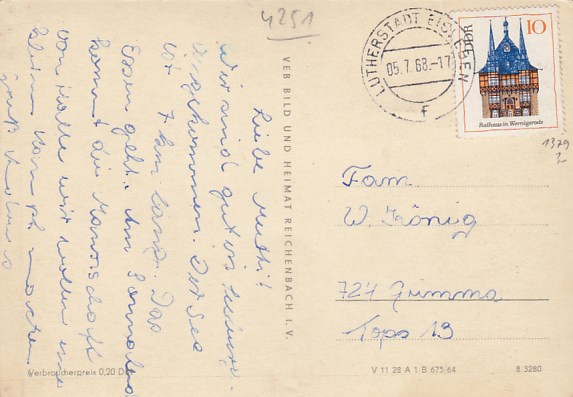 4251
Liebe Mutti!
Wir sind gut in
angekommen. Der See
ist 7 km lang. Das
Essen geht. Am Sonnabend
kommt die Mannschaft
von Halle wir wollen
kleinen Kampf machen
VEB BILD UND HEIMAT REICHENBACH I. V.
Verbraucherpreis 0,20 D
LUTHERSTADT EISLEBEN
05.7.68.-17
f
DDR
10
Rathaus in Wernigerode
1379
2
Fam.
W. König
724 Grimma
Tops 13
V 11 28 A 1 B 675/64
8 3280